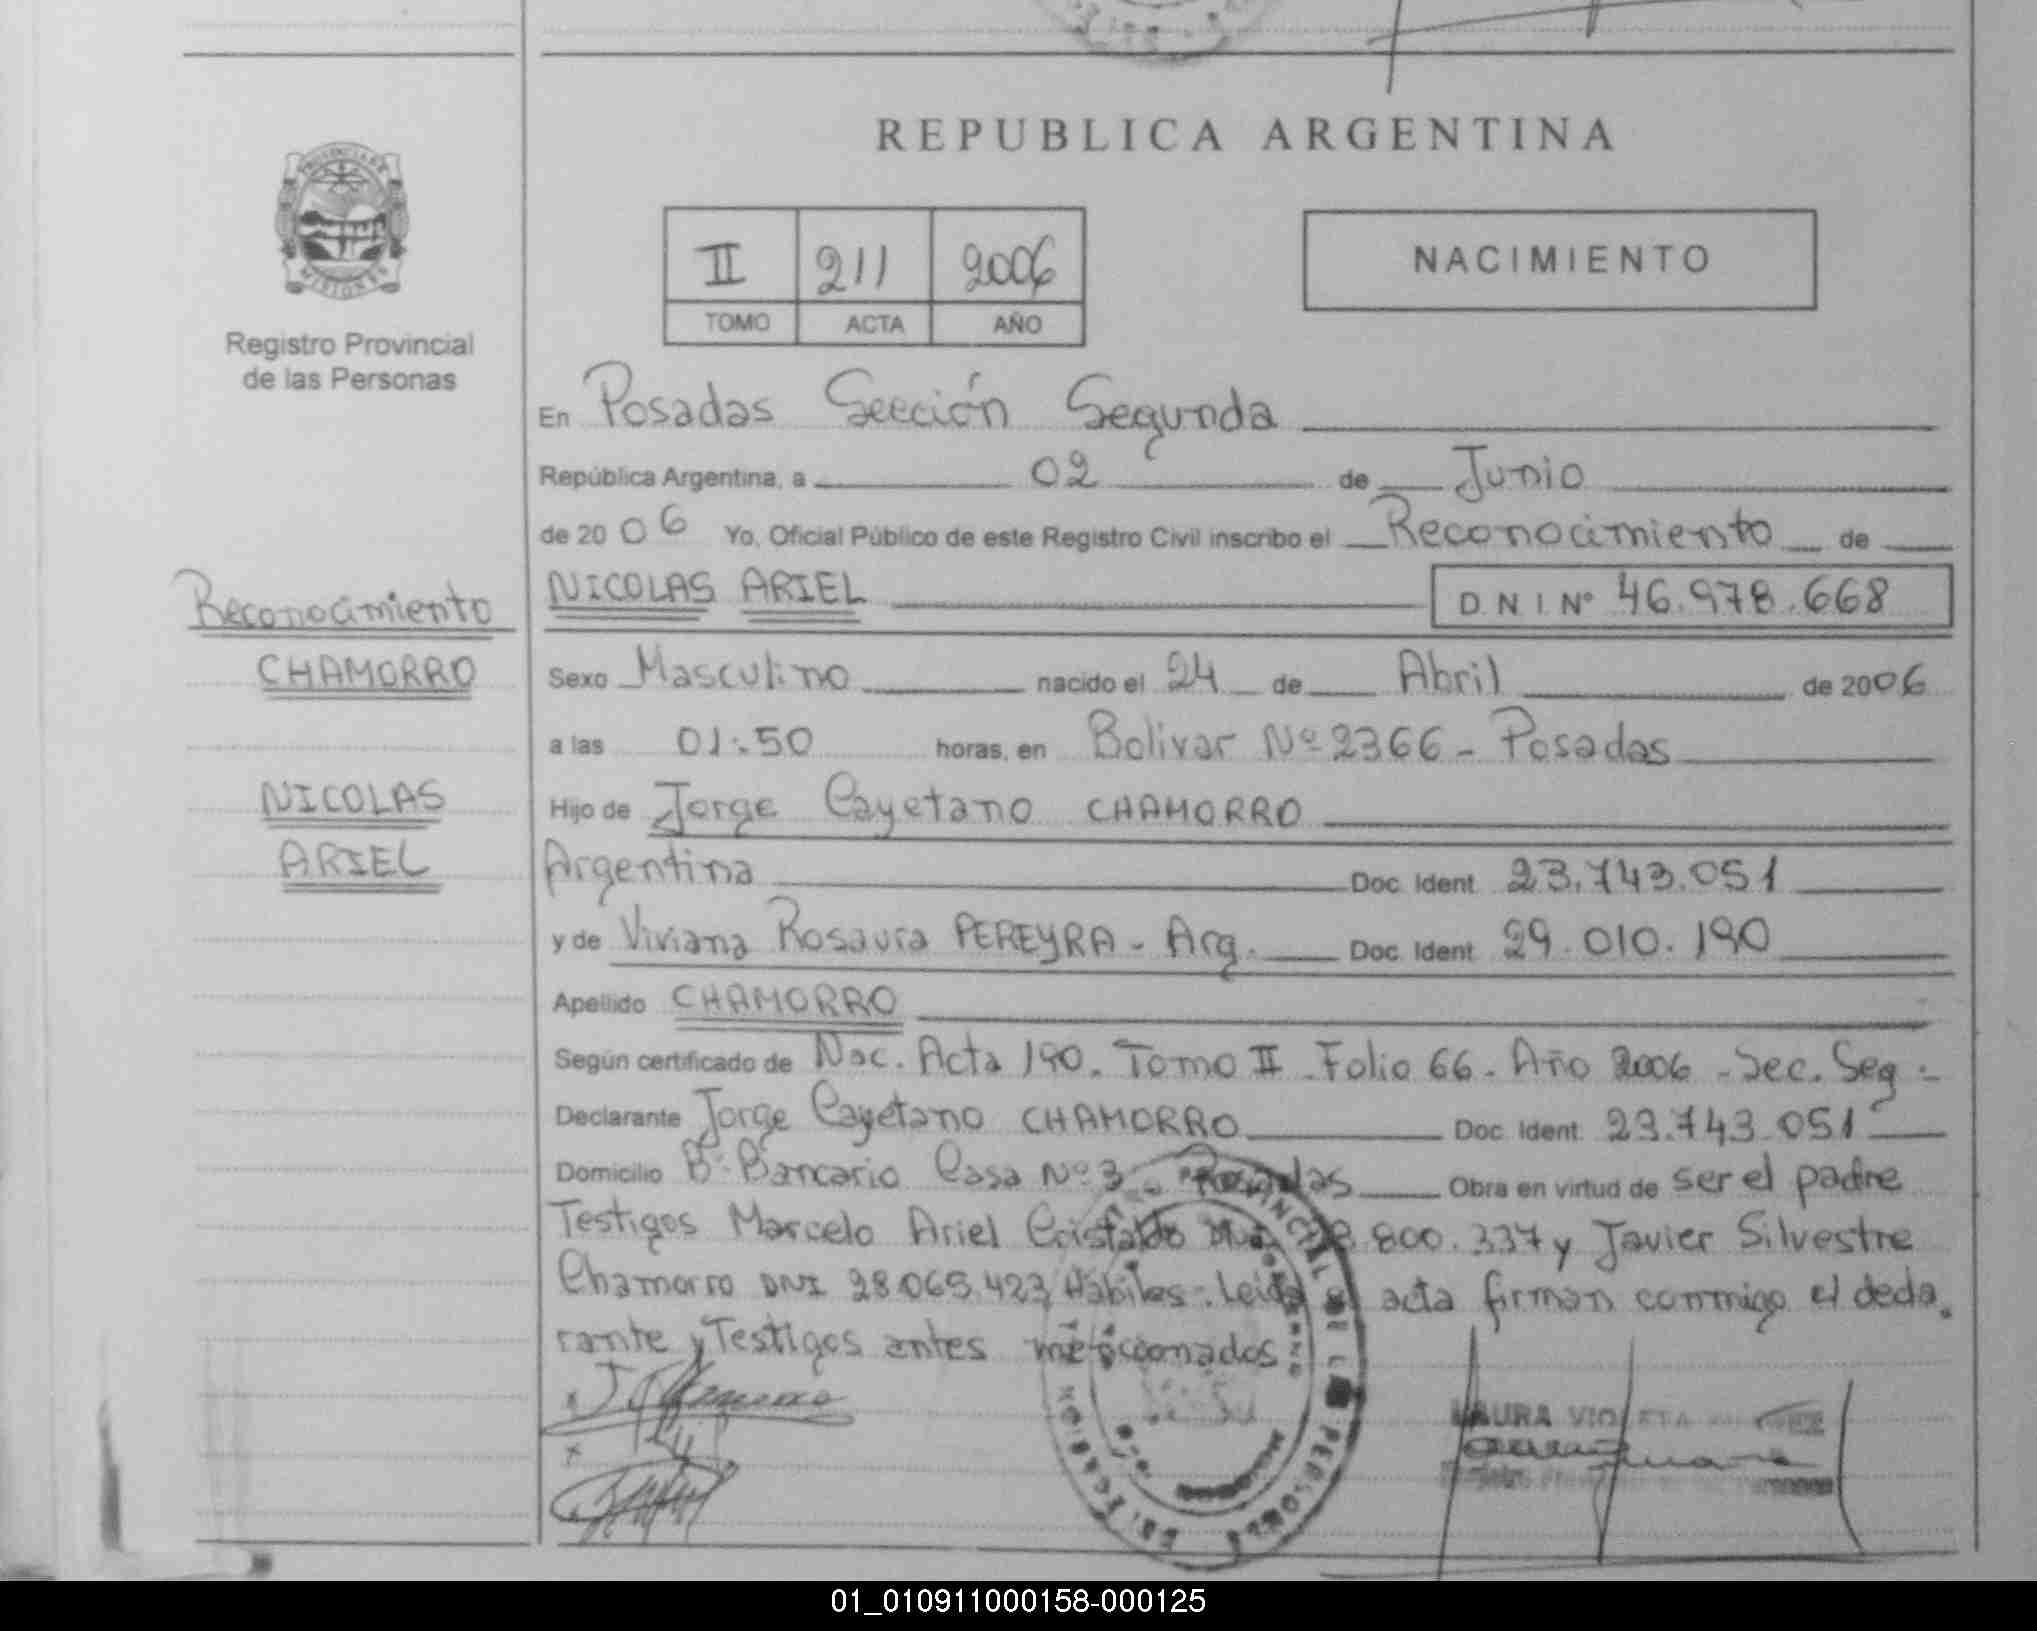 REPUBLICA ARGENTINA
PROVINCIA DE
MISIONES
Registro Provincial
de las Personas
II 211 2006
TOMO ACTA AÑO
NACIMIENTO
En Posadas Sección Segunda
República Argentina, a 02 de Junio
de 2006 Yo, Oficial Público de este Registro Civil inscribo el Reconocimiento de
NICOLAS ARIEL D.N.I. Nº 46.978.668
Reconocimiento
CHAMORRO
NICOLAS
ARIEL
Sexo Masculino nacido el 24 de Abril de 2006
a las 01:50 horas, en Bolivar Nº 2366 - Posadas
Hijo de Jorge Cayetano CHAMORRO
Argentina Doc. Ident. 23.743.051
y de Viviana Rosaura PEREYRA - Arg. Doc. Ident. 29.010.190
Apellido CHAMORRO
Según certificado de Nac. Acta 190. Tomo II. Folio 66. Año 2006 - Sec. Seg.-
Declarante Jorge Cayetano CHAMORRO Doc. Ident. 23.743.051
Domicilio Bº Bancario Casa Nº 3 - Posadas Obra en virtud de ser el padre
Testigos Marcelo Ariel Cristaldo 800.337 y Javier Silvestre
Chamorro DNI 28.065.423 Hábiles. Leida el acta firman conmigo el decla
rante y Testigos antes mencionados
LAURA VIOLETA
01_010911000158-000125